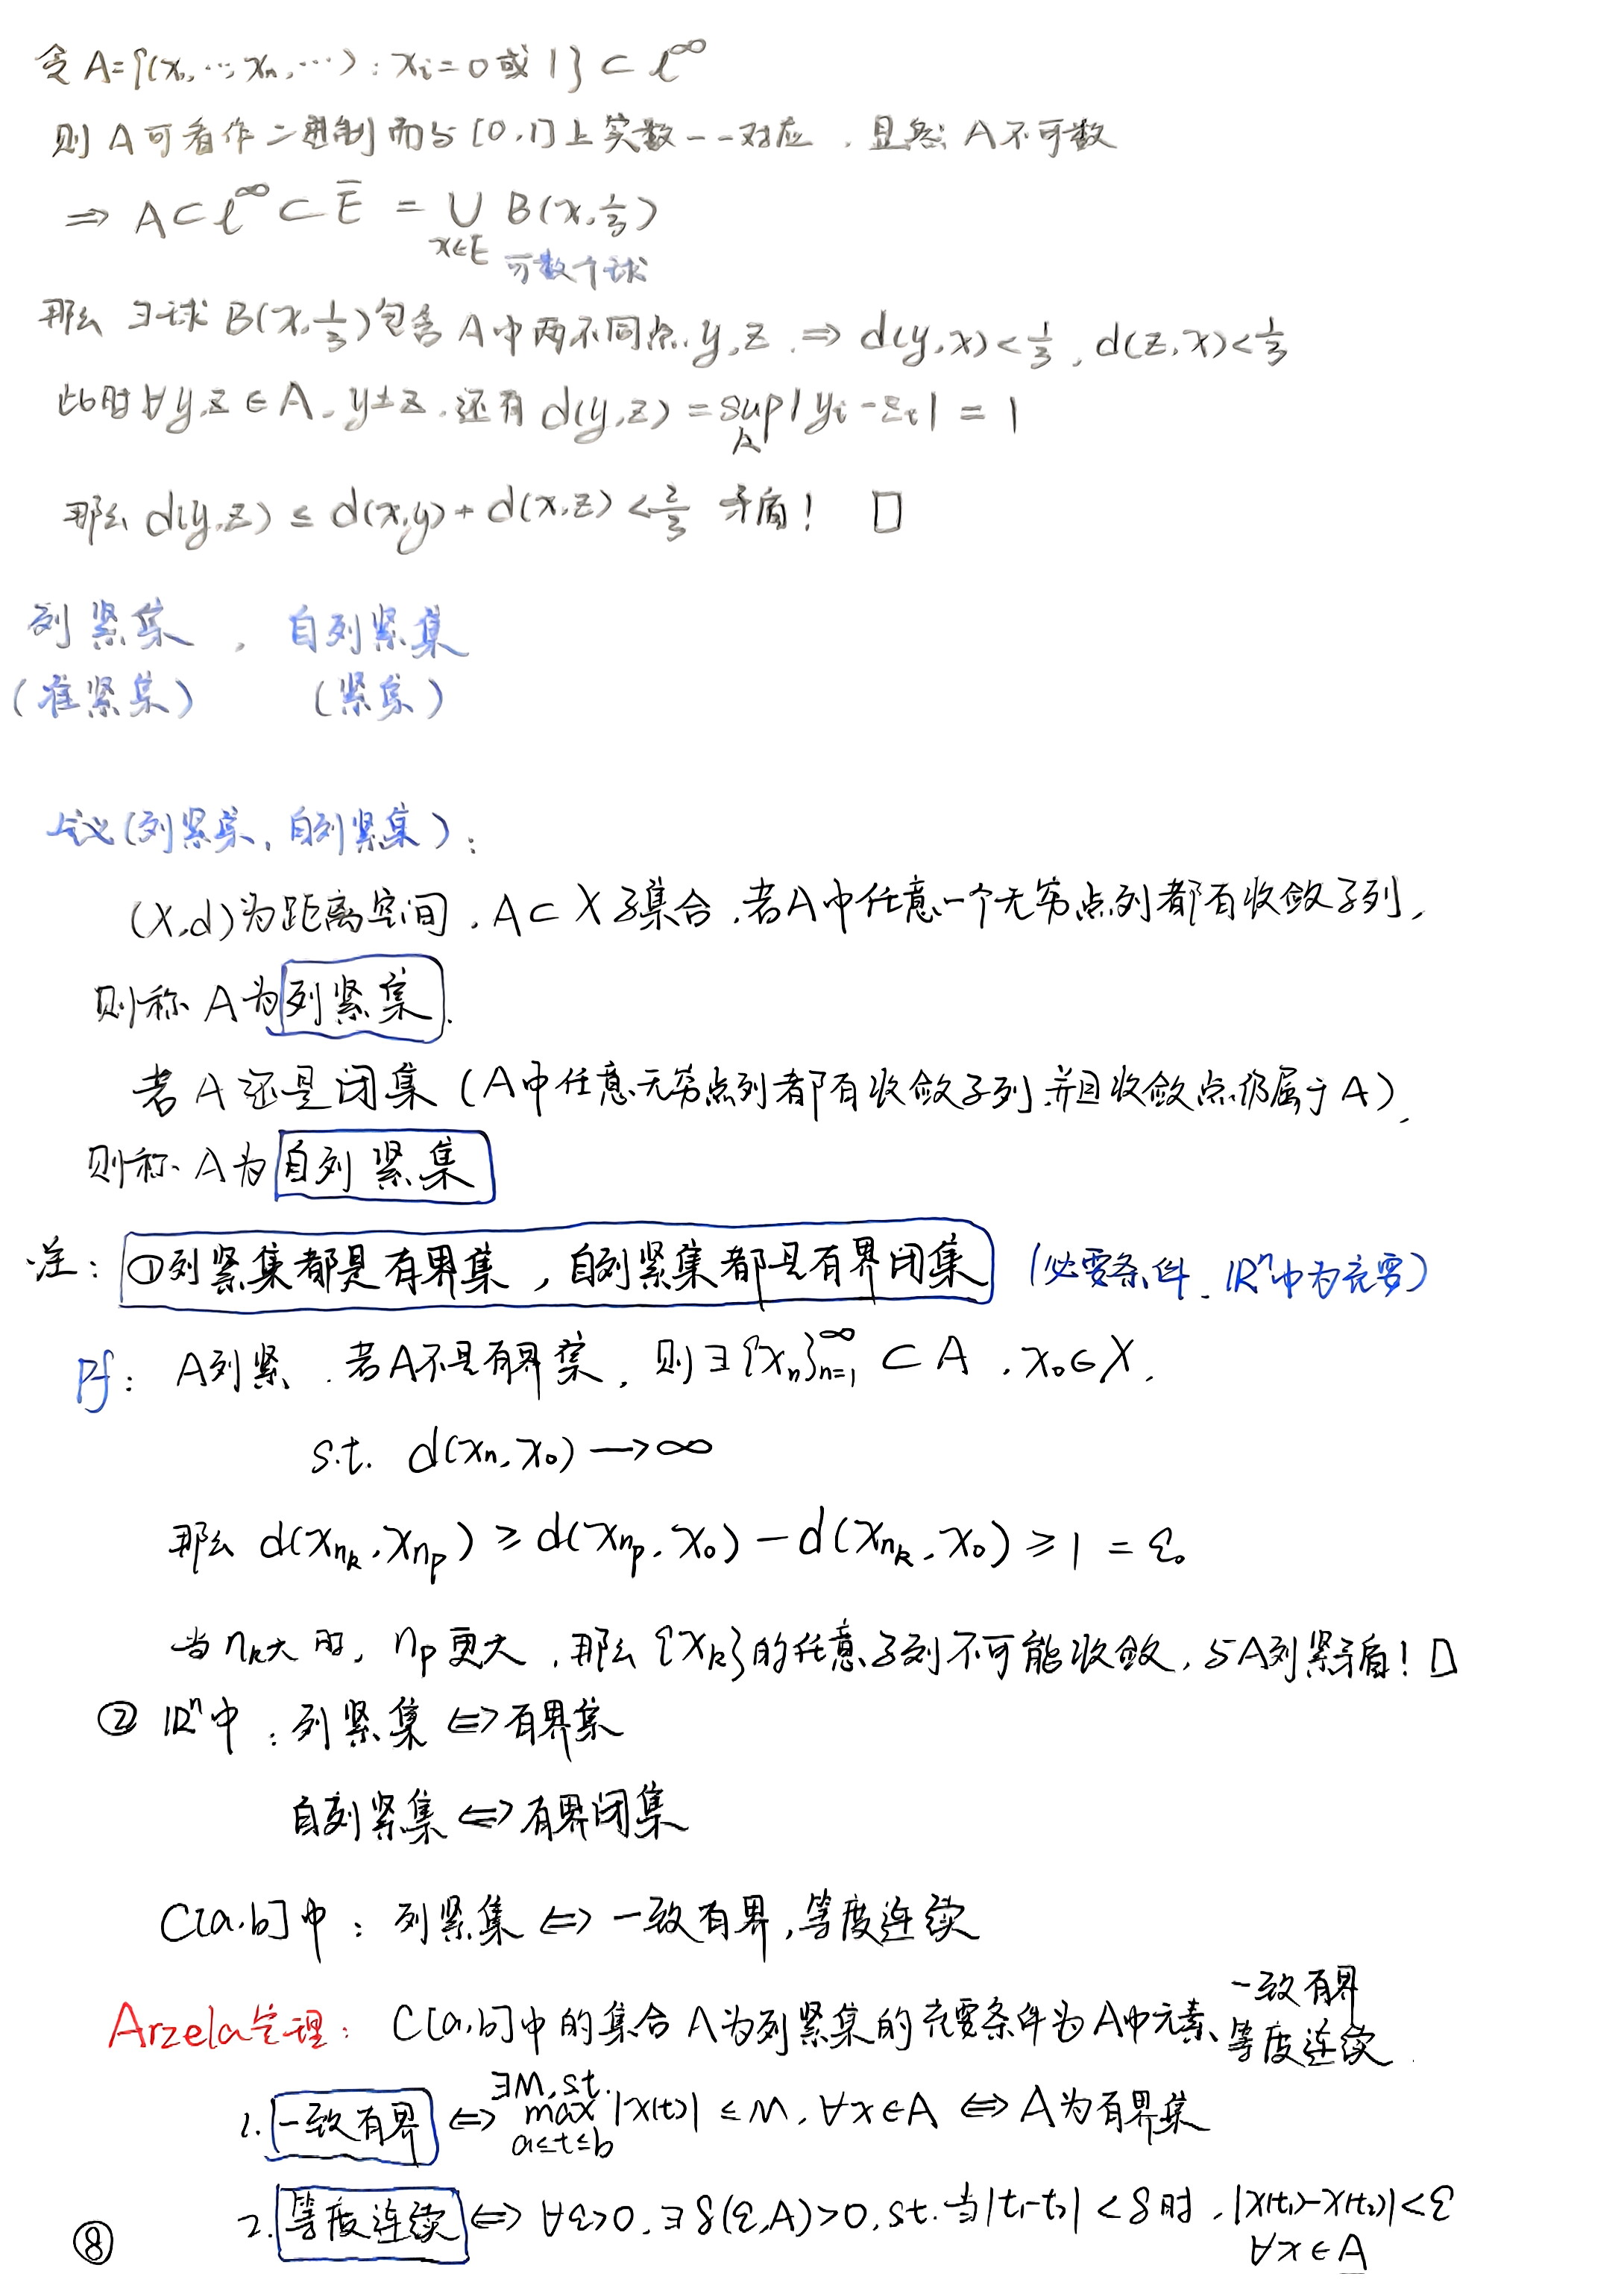 令 A={(x₁,…,xₙ,…): xᵢ=0或1} ⊂ ℓ^∞
则 A 可看作二进制而与 [0,1] 上实数一一对应，显然 A 不可数
⇒ A ⊂ ℓ^∞ ⊂ Ē = ∪_{x∈E} B(x, 1/3)
可数个球
那么 ∃球 B(x, 1/3) 包含 A 中两不同点 y,z, ⇒ d(y,x)<1/3, d(z,x)<1/3
此时 ∀y,z∈A, y≠z, 还有 d(y,z) = sup |yᵢ-zᵢ| = 1
那么 d(y,z) ≤ d(x,y)+d(x,z) < 2/3 矛盾! □
列紧集, 自列紧集
(准紧集) (紧集)
定义(列紧集, 自列紧集):
(X,d)为距离空间, A⊂X子集合, 若A中任意一个无穷点列都有收敛子列,
则称 A 为列紧集.
若 A 还是闭集 (A中任意无穷点列都有收敛子列并且收敛点仍属于A),
则称 A 为自列紧集
注: ①列紧集都是有界集, 自列紧集都是有界闭集 (必要条件, ℝⁿ中为充要)
Pf: A列紧, 若A不是有界集, 则∃{xₙ}_{n=1}^∞ ⊂ A, x₀∈X,
s.t. d(xₙ,x₀)→∞
那么 d(x_{n_k}, x_{n_p}) ≥ d(x_{n_p}, x₀) - d(x_{n_k}, x₀) ≥ 1 = ε₀
当 n_k大时, n_p更大, 那么{x_k}的任意子列不可能收敛, 与A列紧矛盾! □
② ℝⁿ中: 列紧集 ⇔ 有界集
自列紧集 ⇔ 有界闭集
C[a,b]中: 列紧集 ⇔ 一致有界, 等度连续
Arzela定理: C[a,b]中的集合A为列紧集的充要条件为A中元素 一致有界 等度连续.
1. 一致有界 ⇔ ∃M, s.t. max_{a≤t≤b} |x(t)| ≤ M, ∀x∈A ⇔ A为有界集
2. 等度连续 ⇔ ∀ε>0, ∃δ(ε,A)>0, s.t. 当|t₁-t₂|<δ时, |x(t₁)-x(t₂)|<ε
∀x∈A
⑧